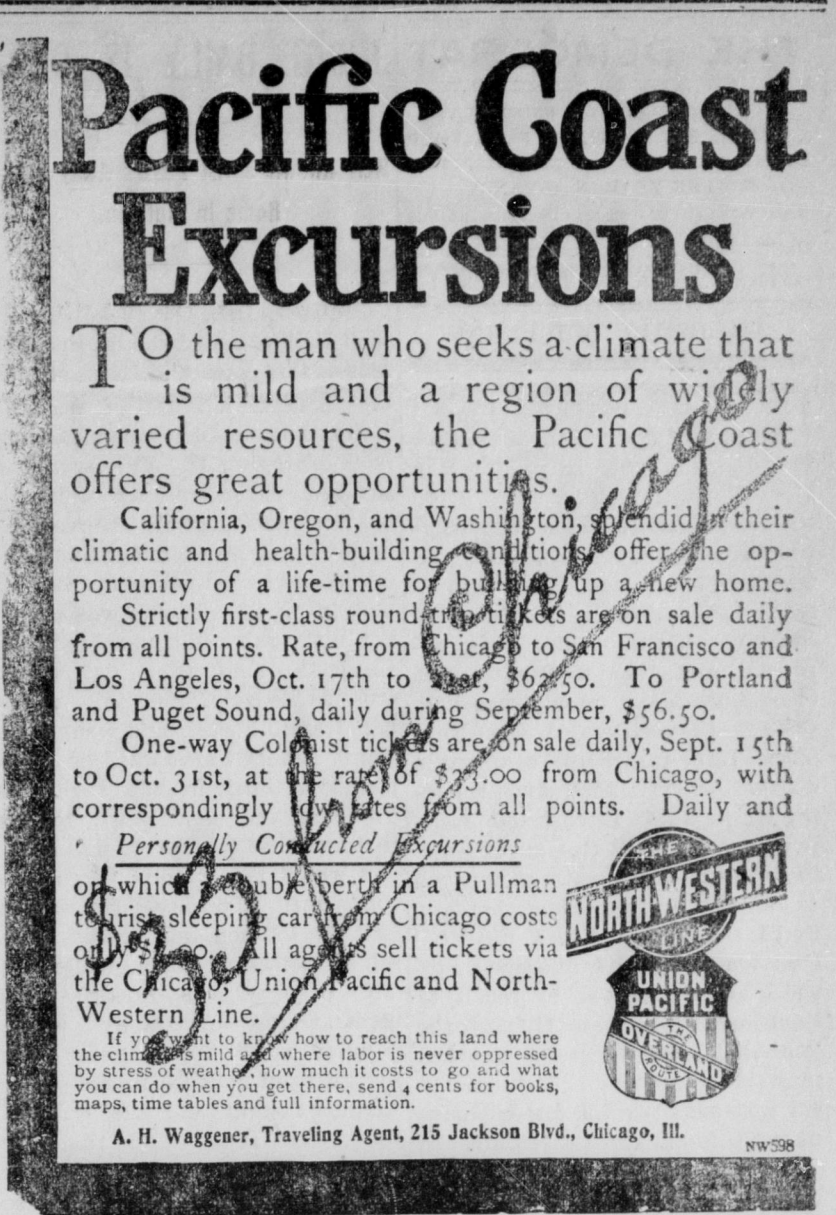 Pacific Coast
Excursions
TO the man who seeks a climate that
is mild and a region of widely
varied resources, the Pacific Coast
offers great opportunities.
California, Oregon, and Washington, splendid in their
climatic and health-building conditions offer the op-
portunity of a life-time for building up a new home.
Strictly first-class round-trip tickets are on sale daily
from all points. Rate, from Chicago to San Francisco and
Los Angeles, Oct. 17th to 21st, $62.50. To Portland
and Puget Sound, daily during September, $56.50.
One-way Colonist tickets are on sale daily, Sept. 15th
to Oct. 31st, at the rate of $33.00 from Chicago, with
correspondingly low rates from all points. Daily and
Personally Conducted Excursions
on which a double berth in a Pullman
tourist sleeping car from Chicago costs
only $ .00. All agents sell tickets via
the Chicago, Union Pacific and North-
Western Line.
If you want to know how to reach this land where
the climate is mild and where labor is never oppressed
by stress of weather, how much it costs to go and what
you can do when you get there, send 4 cents for books,
maps, time tables and full information.
A. H. Waggener, Traveling Agent, 215 Jackson Blvd., Chicago, Ill.
NW598
$33 from Chicago
THE
NORTH-WESTERN
LINE
UNION
PACIFIC
THE
OVERLAND
ROUTE